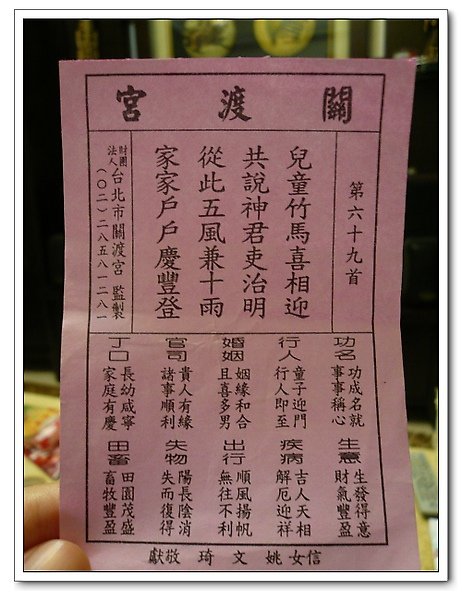 關渡宮
第六十九首
兒童竹馬喜相迎
共說神君吏治明
從此五風兼十雨
家家戶戶慶豐登
財團法人台北市關渡宮 監製
(〇二)二八五八一二八一
功名 功成名就 事事稱心
行人 童子迎門 行人即至
婚姻 姻緣和合 且喜多男
官司 貴人有緣 諸事順利
丁口 長幼咸寧 家庭有慶
生意 生發得意 財氣豐盈
疾病 吉人天相 解厄迎祥
出行 順風揚帆 無往不利
失物 陽長陰消 失而復得
田畜 田園茂盛 畜牧豐盈
信女姚文琦敬獻